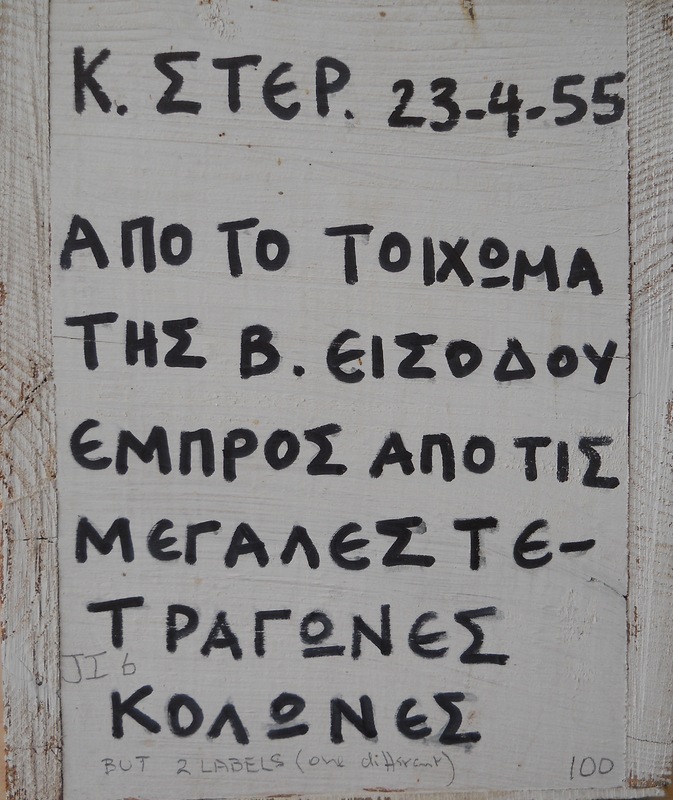 Κ. ΣΤΕΡ. 23-4-55
ΑΠΟ ΤΟ ΤΟΙΧΩΜΑ
ΤΗΣ Β. ΕΙΣΟΔΟΥ
ΕΜΠΡΟΣ ΑΠΟ ΤΙΣ
ΜΕΓΑΛΕΣ ΤΕ-
ΤΡΑΓΩΝΕΣ
JI 6
ΚΟΛΩΝΕΣ
BUT 2 LABELS (one different) 100